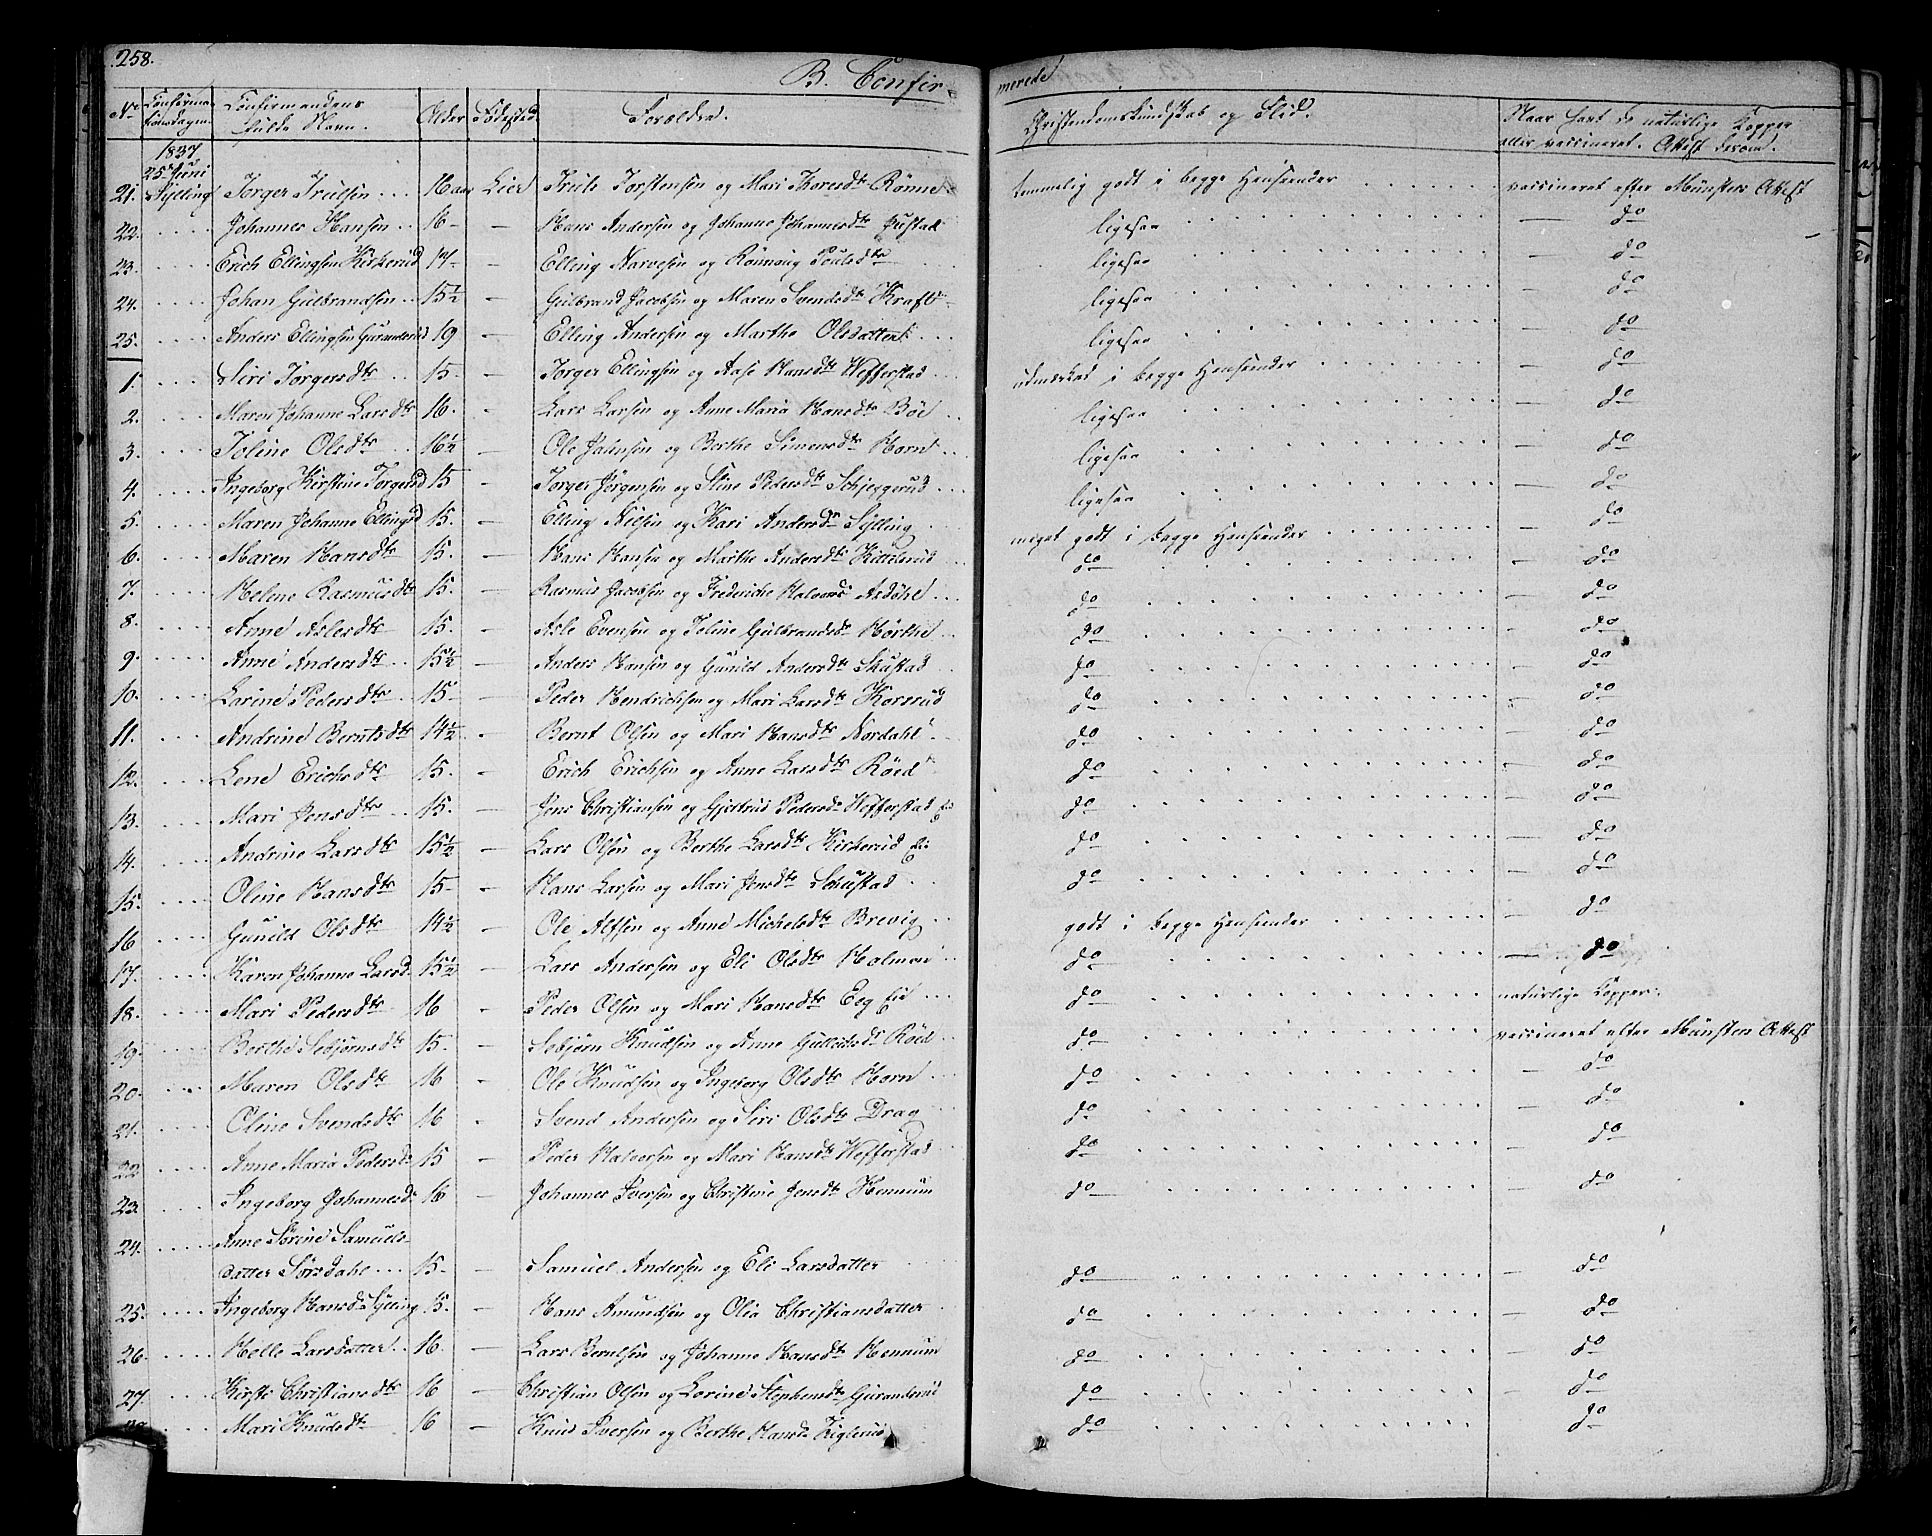 258.
B. Confirmerede
No Confirmationsdagen Confirmandens fulde Navn. Alder Födested Forældre. Christendomskundskab og Flid. Naar havt de natürlige Kopper eller vaccineret. Attest derom.
1837
25de Juni
21. Sylling Torger Trulsen 16 aar Lier Truls Torstensen og Mari Toresdtr Rönne temmelig godt i begge Hensender vaccineret efter Münsters Attest
22. Johannes Hansen 16 — Hans Andersen og Johanne Johannesdtr Justad ligesaa — do
23. Erich Ellingsen Kirkerud 17 — Elling Narvesen og Rönnaug Poulsdtr ligesaa — do
24. Johan Gulbrandsen 15½ — Gulbrand Jacobsen og Maren Svendsdtr Kraft ligesaa — do
25. Anders Ellingsen Guranderud 19 — Elling Andersen og Marthe Olsdatter ligesaa — do
1. Siri Torgersdtr 15. — Torger Ellingsen og Aase Hansdtr Hefferstad udmærket i begge Hensender — do
2. Maren Johanne Larsdtr 16. — Lars Larsen og Anne Maria Hansdtr Böe ligesaa — do
3. Toline Olsdtr 16½ — Ole Johnsen og Berthe Simensdtr Horn ligesaa — do
4. Ingeborg Kirstine Torgersd 15 — Torger Jörgensen og Stine Pedersdtr Schjeggerud ligesaa — do
5. Maren Johanne Ellingsd 15. — Elling Nilsen og Kari Andersdtr Sylling meget godt i begge Hensender — do
6. Maren Hansdtr 15. — Hans Hansen og Marthe Andersdtr Kittilsrud do — do
7. Helene Rasmusdtr 15. — Rasmus Jacobsen og Frederiche Halvorsd Asdöhl do — do
8. Anne Aslesdtr 15. — Asle Evensen og Toline Gulbrandsdr Hörthe do — do
9. Anne Andersdtr 15½ — Anders Hansen og Gunild Andersdtr Skustad do — do
10. Larine Pedersdtr 15 — Peder Hendrichsen og Mari Larsdtr Korsrud do — do
11. Andrine Berntsdtr 14½ — Bernt Olsen og Mari Hansdtr Nordahl do — do
12. Lene Erichsdtr 15. — Erich Erichsen og Anne Larsdtr Röed do — do
13. Mari Jensdtr 15. — Jens Christiansen og Gjertrud Pedersdr Hefferstad do — do
14. Andrine Larsdtr 15½ — Lars Olsen og Berthe Larsdtr Kirkerud do — do
15. Oline Hansdtr 15 — Hans Larsen og Mari Jensdtr Schustad do — do
16 Gunild Olsdtr 14½ — Ole Alfsen og Anne Michelsdtr Brevig godt i begge Hensender — do
17. Karen Johanne Larsd. 15½ — Lars Andersen og Eli Olsdtr Holmen do — do
18. Mari Pedersdtr 16 — Peder Olsen og Mari Hansdtr Eeg do natürlige Kopper.
19. Berthe Sebjörnsdtr 15. — Sebjörn Knudsen og Anne Gulliksdr Röed do vaccineret efter Münsters Attest
20. Maren Olsdtr 16 — Ole Knudsen og Ingeborg Olsdtr Horn do — do
21. Oline Svendsdtr 16 — Svend Andersen og Siri Olsdtr Drag do — do
22 Anne Maria Pedersd 15 — Peder Halvorsen og Mari Hansdtr Hefferstad do — do
23. Ingeborg Johannesdr 16 — Johannes Iversen og Christine Jensdtr Hennum do — do
24. Anne Sörine Samuels-
datter Sörsdahl 15. — Samuel Andersen og Eli Larsdatter do — do
25. Ingeborg Hansdr Sylling 15. — Hans Amundsen og Olia Christiansdatter do — do
26. Helle Larsdatter 16. — Lars Berntsen og Johanne Hansdtr Hennum do — do
27. Kirsti Christiansdtr 16 — Christian Olsen og Lorine Stephensdtr Guranderud do — do
28. Mari Knudsdtr 16 — Knud Iversen og Berthe Hansdr Kiglerud do — do